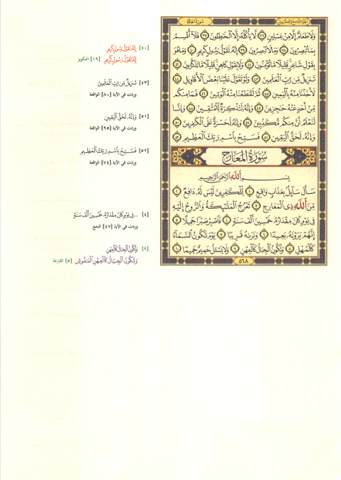 وَلَا طَعَامٌ إِلَّا مِنْ غِسْلِينٍ ٣٦ لَّا يَأْكُلُهُ إِلَّا الْخَاطِئُونَ ٣٧ فَلَا أُقْسِمُ
بِمَا تُبْصِرُونَ ٣٨ وَمَا لَا تُبْصِرُونَ ٣٩ إِنَّهُ لَقَوْلُ رَسُولٍ كَرِيمٍ ٤٠ وَمَا هُوَ
بِقَوْلِ شَاعِرٍ قَلِيلًا مَّا تُؤْمِنُونَ ٤١ وَلَا بِقَوْلِ كَاهِنٍ قَلِيلًا مَّا تَذَكَّرُونَ ٤٢
تَنزِيلٌ مِّن رَّبِّ الْعَالَمِينَ ٤٣ وَلَوْ تَقَوَّلَ عَلَيْنَا بَعْضَ الْأَقَاوِيلِ ٤٤
لَأَخَذْنَا مِنْهُ بِالْيَمِينِ ٤٥ ثُمَّ لَقَطَعْنَا مِنْهُ الْوَتِينَ ٤٦ فَمَا مِنكُم
مِّنْ أَحَدٍ عَنْهُ حَاجِزِينَ ٤٧ وَإِنَّهُ لَتَذْكِرَةٌ لِّلْمُتَّقِينَ ٤٨ وَإِنَّا
لَنَعْلَمُ أَنَّ مِنكُم مُّكَذِّبِينَ ٤٩ وَإِنَّهُ لَحَسْرَةٌ عَلَى الْكَافِرِينَ ٥٠
وَإِنَّهُ لَحَقُّ الْيَقِينِ ٥١ فَسَبِّحْ بِاسْمِ رَبِّكَ الْعَظِيمِ ٥٢
سُورَةُ الْمَعَارِجِ
بِسْمِ اللَّهِ الرَّحْمَٰنِ الرَّحِيمِ
سَأَلَ سَائِلٌ بِعَذَابٍ وَاقِعٍ ١ لِّلْكَافِرِينَ لَيْسَ لَهُ دَافِعٌ ٢
مِّنَ اللَّهِ ذِي الْمَعَارِجِ ٣ تَعْرُجُ الْمَلَائِكَةُ وَالرُّوحُ إِلَيْهِ
فِي يَوْمٍ كَانَ مِقْدَارُهُ خَمْسِينَ أَلْفَ سَنَةٍ ٤ فَاصْبِرْ صَبْرًا جَمِيلًا ٥
إِنَّهُمْ يَرَوْنَهُ بَعِيدًا ٦ وَنَرَاهُ قَرِيبًا ٧ يَوْمَ تَكُونُ السَّمَاءُ
كَالْمُهْلِ ٨ وَتَكُونُ الْجِبَالُ كَالْعِهْنِ ٩ وَلَا يَسْأَلُ حَمِيمٌ حَمِيمًا ١٠
٥٦٨
[٤٠] إِنَّهُ لَقَوْلُ رَسُولٍ كَرِيمٍ
إِنَّهُ لَقَوْلُ رَسُولٍ كَرِيمٍ [١٩] التكوير
[٤٣] تَنزِيلٌ مِّن رَّبِّ الْعَالَمِينَ
وردت في الآية [٨٠] الواقعة
[٥١] وَإِنَّهُ لَحَقُّ الْيَقِينِ
وردت في الآية [٩٥] الواقعة
[٥٢] فَسَبِّحْ بِاسْمِ رَبِّكَ الْعَظِيمِ
وردت في الآية [٧٤] الواقعة
[٤] ..فِي يَوْمٍ كَانَ مِقْدَارُهُ خَمْسِينَ أَلْفَ سَنَةٍ
وردت في الآية [٤٧] الحج
[٩] وَتَكُونُ الْجِبَالُ كَالْعِهْنِ
وَتَكُونُ الْجِبَالُ كَالْعِهْنِ الْمَنفُوشِ [٥] القارعة